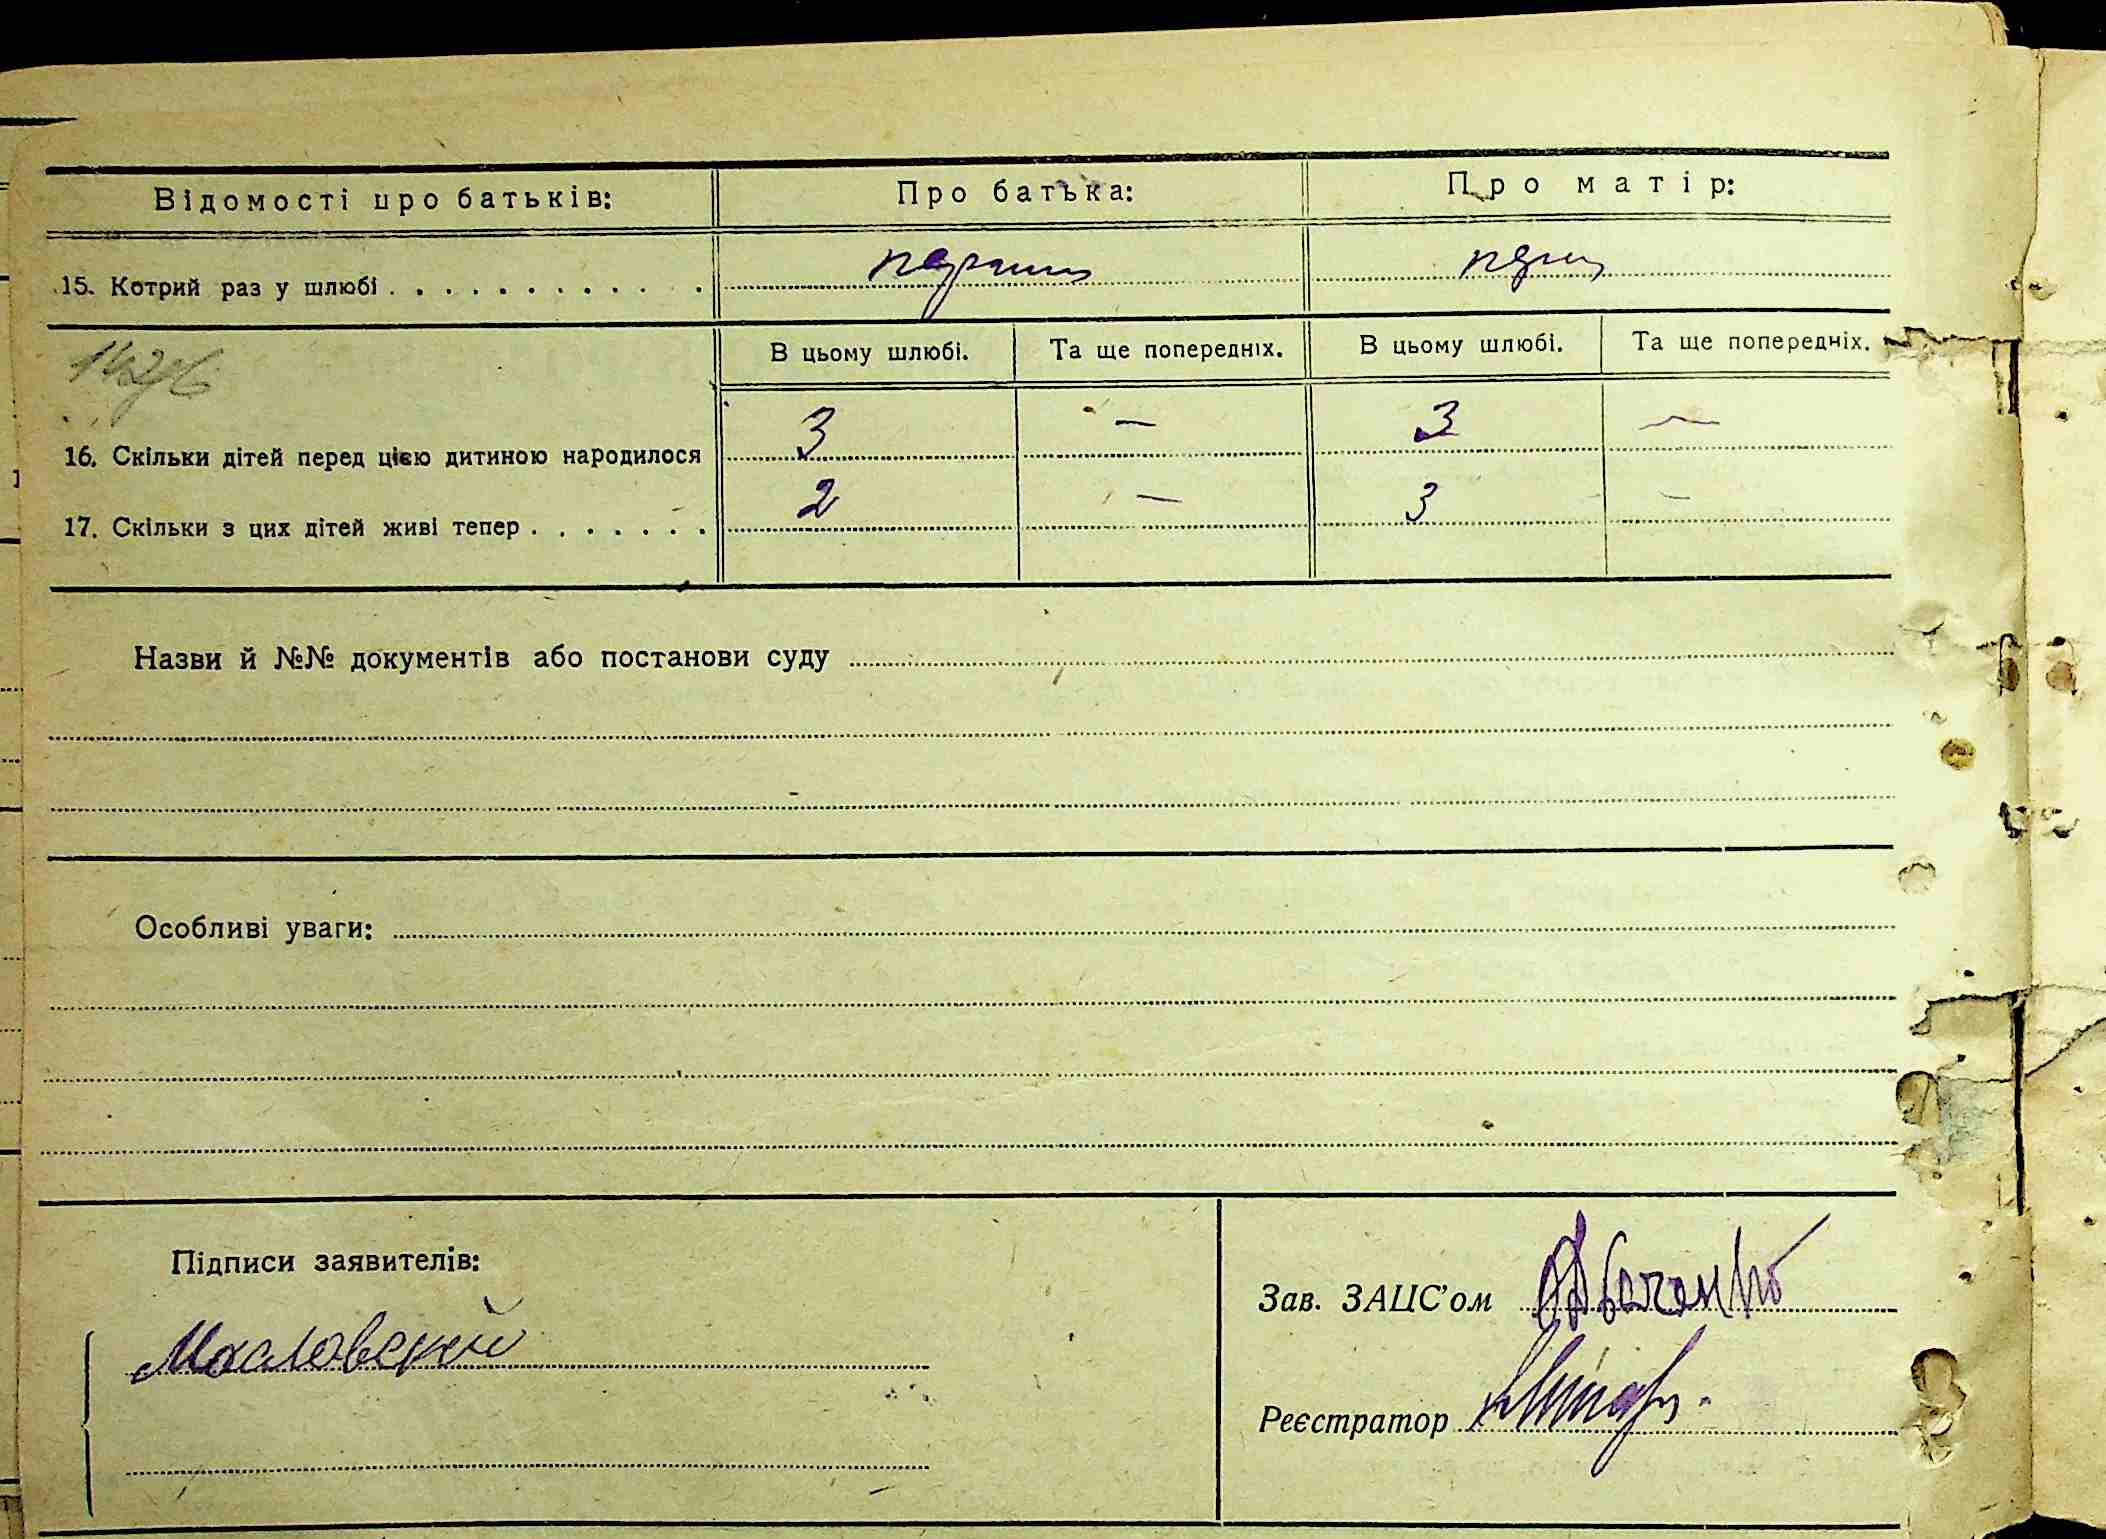 Відомості про батьків: Про батька: Про матір:
15. Котрий раз у шлюбі . . . . . . . . . . . .
В цьому шлюбі. Та ще попередніх. В цьому шлюбі. Та ще попередніх.
16. Скільки дітей перед цією дитиною народилося 3 — 3 —
17. Скільки з цих дітей живі тепер . . . . . . . 2 — 3 —
Назви й №№ документів або постанови суду
Особливі уваги:
Підписи заявителів:
Зав. ЗАЦС'ом
Масловский
Реєстратор